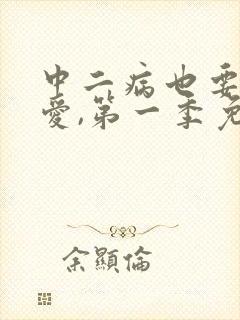 中二病也要
爱,第一季免
余顯倫